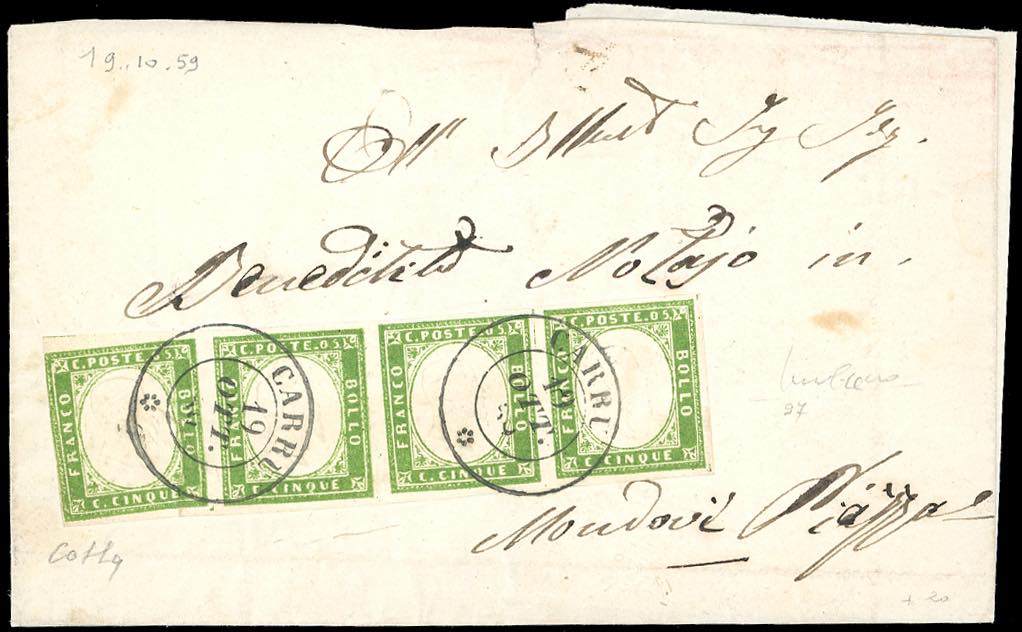 19..10.59
Benedetto Notajo in.
C. POSTE. 05.
FRANCO
BOLLO
C. CINQUE
C. POSTE. 05.
FRANCO
BOLLO
C. CINQUE
C. POSTE. 05.
FRANCO
BOLLO
C. CINQUE
C. POSTE. 05.
FRANCO
BOLLO
C. CINQUE
CARRU
19
OTT.
59
CARRU
19
OTT.
59
97
Mondovì Piazza
Cotta
+ 20